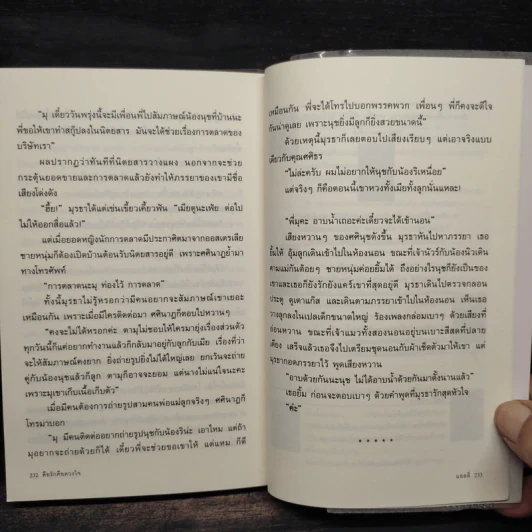 "มุ เดี๋ยววันพรุ่งนี้จะมีเพื่อนพี่ไปสัมภาษณ์น้องนุชที่บ้านนะ
พี่ขอให้เขาทำสกู๊ปลงในนิตยสาร มันจะได้ช่วยเรื่องการตลาดของ
บริษัทเรา"
ผลปรากฏว่าทันทีที่นิตยสารวางแผง นอกจากจะช่วย
กระตุ้นยอดขายและการตลาดแล้วยังทำให้ภรรยาของเขามีชื่อ
เสียงโด่งดัง
"ฮึ้ย!" มุรธาได้แต่เข่นเขี้ยวเคี้ยวฟัน "เมียตูนะเฟ้ย ต่อไป
ไม่ให้ออกสื่อแล้ว!"
แต่เมื่อยอดหญิงนักการตลาดมีประกาศิตมาจากออสเตรเลีย
ชายหนุ่มก็ต้องเปิดบ้านต้อนรับนิตยสารอยู่ดี เพราะศศินาฏย้ำมา
ทางโทรศัพท์
"การตลาดนะมุ ท่องไว้ การตลาด"
ทั้งนี้มุรธาไม่รู้หรอกว่ามีคนอยากจะสัมภาษณ์เขาเยอะ
เหมือนกัน เพราะเมื่อมีใครติดต่อมา ศศินาฏก็ตอบไปหวานๆ
"คงจะไม่ได้หรอกค่ะ ตามุไม่ชอบให้ใครมายุ่งเรื่องส่วนตัว
ทุกวันนี้ก็แค่อยากทำงานแล้วก็กลับมาอยู่กับลูกกับเมีย เรื่องที่ว่า
จะให้สัมภาษณ์คงยาก ยิ่งถ่ายรูปยิ่งไม่ได้ใหญ่เลย ยกเว้นจะถ่าย
คู่กับน้องนุชแล้วก็ลูก ตามุก็อาจจะยอม แต่นางแม่ไม่แน่ใจนะคะ
เพราะมุเขาเก็บเนื้อเก็บตัว"
เมื่อมีคนต้องการถ่ายรูปสามคนพ่อแม่ลูกจริงๆ ศศินาฏก็
โทรมาบอก
"มุ มีคนติดต่ออยากถ่ายรูปนุชกับน้องริน่ะ เอาไหม แต่ถ้า
มุอยากจะถ่ายด้วยก็ได้ เดี๋ยวพี่จะช่วยขอเขาให้ แต่แหม ก็ดี
232 คือรักคือดวงใจ
เหมือนกัน พี่จะได้โทรไปบอกพรรคพวก เพื่อนๆ พี่ก็คงจะดีใจ
กันน่าดูเลย เพราะนุชยิ่งมีลูกก็ยิ่งสวยขนาดนี้"
ด้วยเหตุนี้มุรธาก็เลยตอบไปเสียงเรียบๆ แต่เอาจริงแบบ
เดียวกับคุณศศิธร
"ไม่ละครับ ผมไม่อยากให้นุชกับน้องริเหนื่อย"
แต่จริงๆ ก็คือตอนนี้เขาหวงทั้งเมียทั้งลูกนั่นแหละ!
"พี่มุคะ อาบน้ำเถอะค่ะเดี๋ยวจะได้เข้านอน"
เสียงหวานๆ ของศศินุชดังขึ้น มุรธาหันไปหาภรรยา เธอ
ยิ้มให้ อุ้มลูกเดินเข้าไปในห้องนอน ขณะที่เจ้านัวร์กับน้องนิวเดิน
ตามแม่กันต้อยๆ ชายหนุ่มค่อยยิ้มได้ ถึงอย่างไรนุชก็ยังเป็นของ
เขาและเธอก็ยังรักยังแคร์เขาที่สุดอยู่ดี มุรธาเดินไปตรวจกลอน
ประตู ดูเตาแก๊ส และเดินตามภรรยาเข้าไปในห้องนอน เห็นเธอ
วางลูกลงในเปลเด็กขนาดใหญ่ ร้องเพลงกล่อมเบาๆ ด้วยเสียงที่
อ่อนหวาน ขณะที่เจ้าแมวทั้งสองนอนอยู่บนเบาะสีสดที่ปลาย
เตียง เสร็จแล้วเธอจึงไปเตรียมชุดนอนกับผ้าเช็ดตัวมาให้เขา แต่
มุรธากอดภรรยาไว้ พูดเสียงหวาน
"อาบด้วยกันนะนุช ไม่ได้อาบน้ำด้วยกันมาตั้งนานแล้ว"
เธอยิ้ม ก่อนจะตอบเบาๆ ด้วยคำพูดที่มุรธารักสุดหัวใจ
"ค่ะ"
* * * * *
แมลลี่ 233